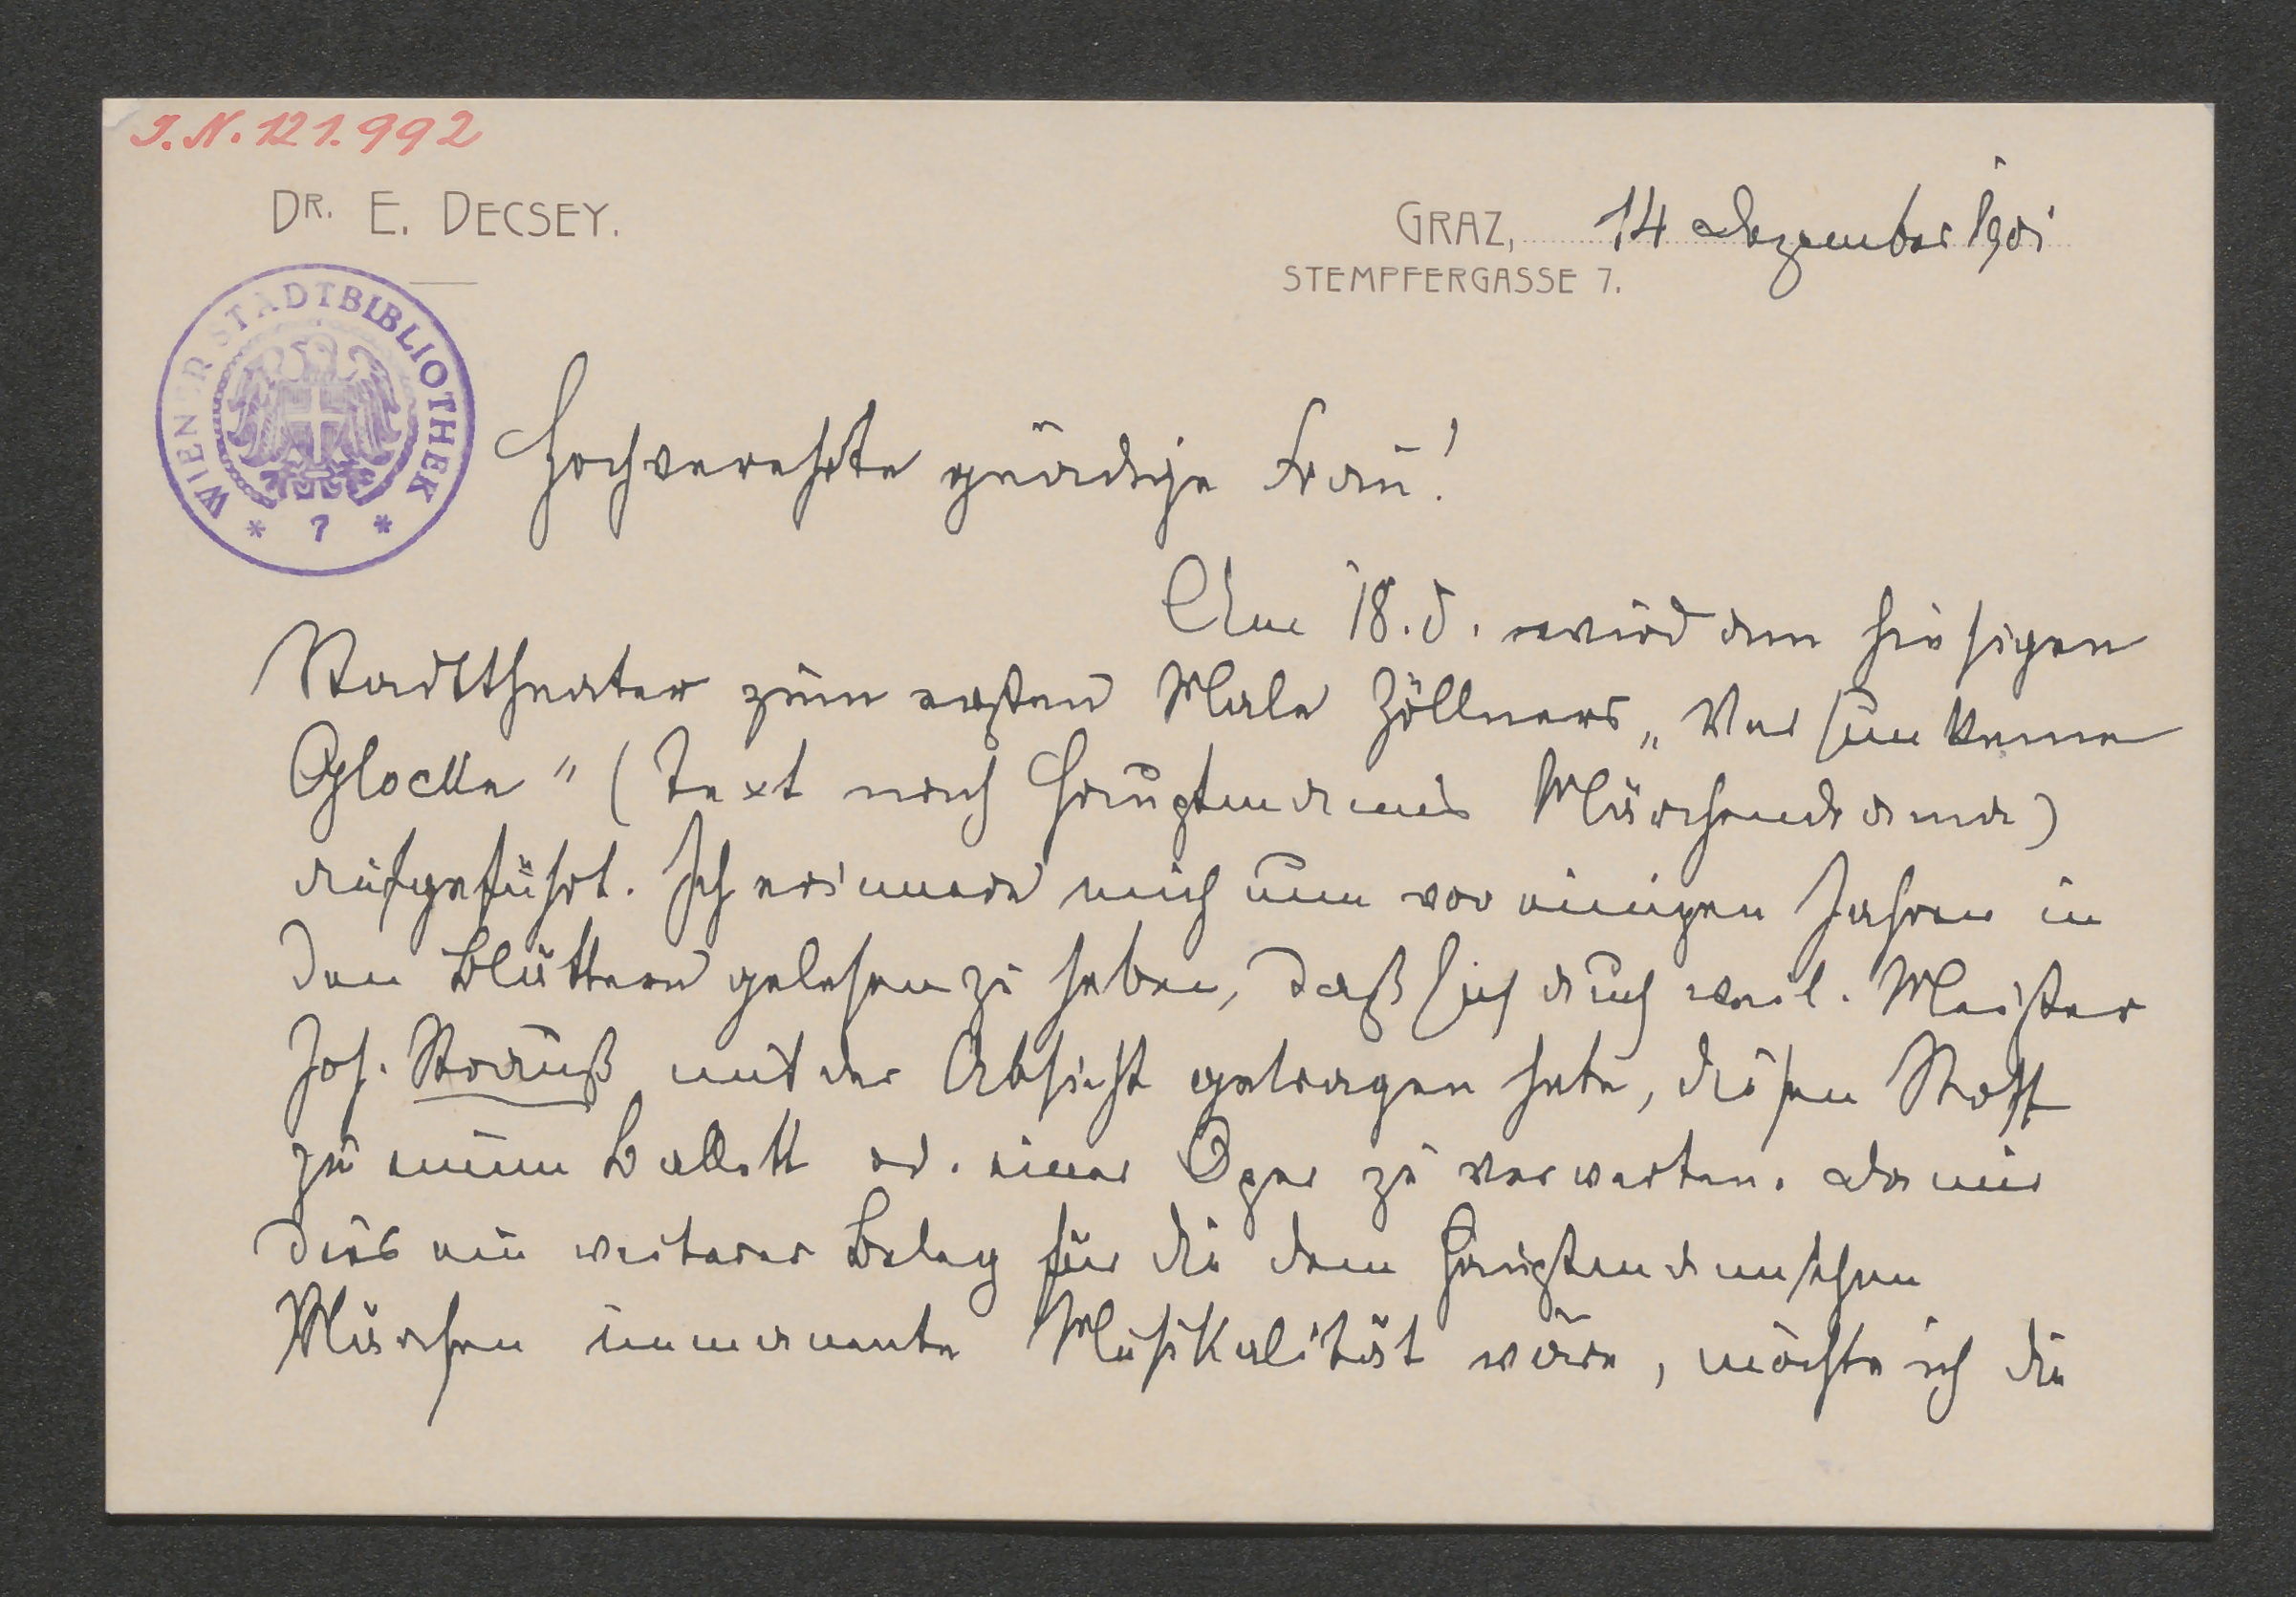 I.N. 121.992
DR. E. DECSEY.
GRAZ, 14 Dezember 1901
STEMPFERGASSE 7.
WIENER STADTBIBLIOTHEK
* 7 *
Hochverehrte gnädige Frau!
Am 18. d. wird am hiesigen
Stadttheater zum ersten Male Zöllners „Versunkene
Glocke" (Text nach Hauptmanns Märchendrama)
aufgeführt. Ich erinnere mich nun vor einigen Jahren in
den Blättern gelesen zu haben, daß sich auch weil. Meister
Joh. Strauß mit der Absicht getragen habe, diesen Stoff
zu einem Ballett od. einer Oper zu verwerten. Da mir
dies ein weiterer Beleg für die dem Hauptmannschen
Märchen immanente Musikalität wäre, möchte ich die